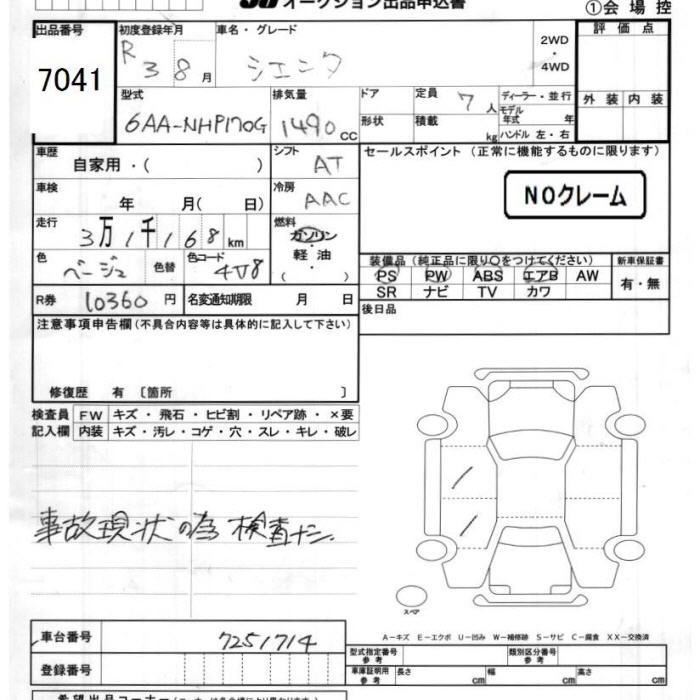 オークション出品申込書 ①会場控
出品番号 7041
初度登録年月 R 3 8 月
車名・グレード シエンタ
2WD ・ 4WD
評価点
外装 内装
型式 6AA-NHP170G
排気量 1490 cc
ドア 形状
定員 7 人
積載 kg
ディーラー・並行
モデル年式 年
ハンドル 左・右
車歴 自家用・( )
シフト AT
セールスポイント (正常に機能するものに限ります)
NOクレーム
車検 年 月( 日)
冷房 AAC
走行 3万1千168 km
燃料 ガソリン・軽油・( )
色 ベージュ 色替 色コード 4V8
装備品 (純正品に限り○をつけてください) 新車保証書
PS PW ABS エアB AW 有・無
SR ナビ TV カワ
R券 10360 円 名変通知期限 月 日
後日品
注意事項申告欄(不具合内容等は具体的に記入して下さい)
修復歴 有 〔箇所 〕
検査員 FW キズ・飛石・ヒビ割・リペア跡・×要
記入欄 内装 キズ・汚レ・コゲ・穴・スレ・キレ・破レ
事故現状の為 検査ナシ
スペア
A-キズ E-エクボ U-凹み W-補修跡 S-サビ C-腐食 XX-交換済
車台番号 7251714
型式指定番号 参考 類別区分番号 参考
登録番号
車庫証明用 参考 長さ cm 幅 cm 高さ cm